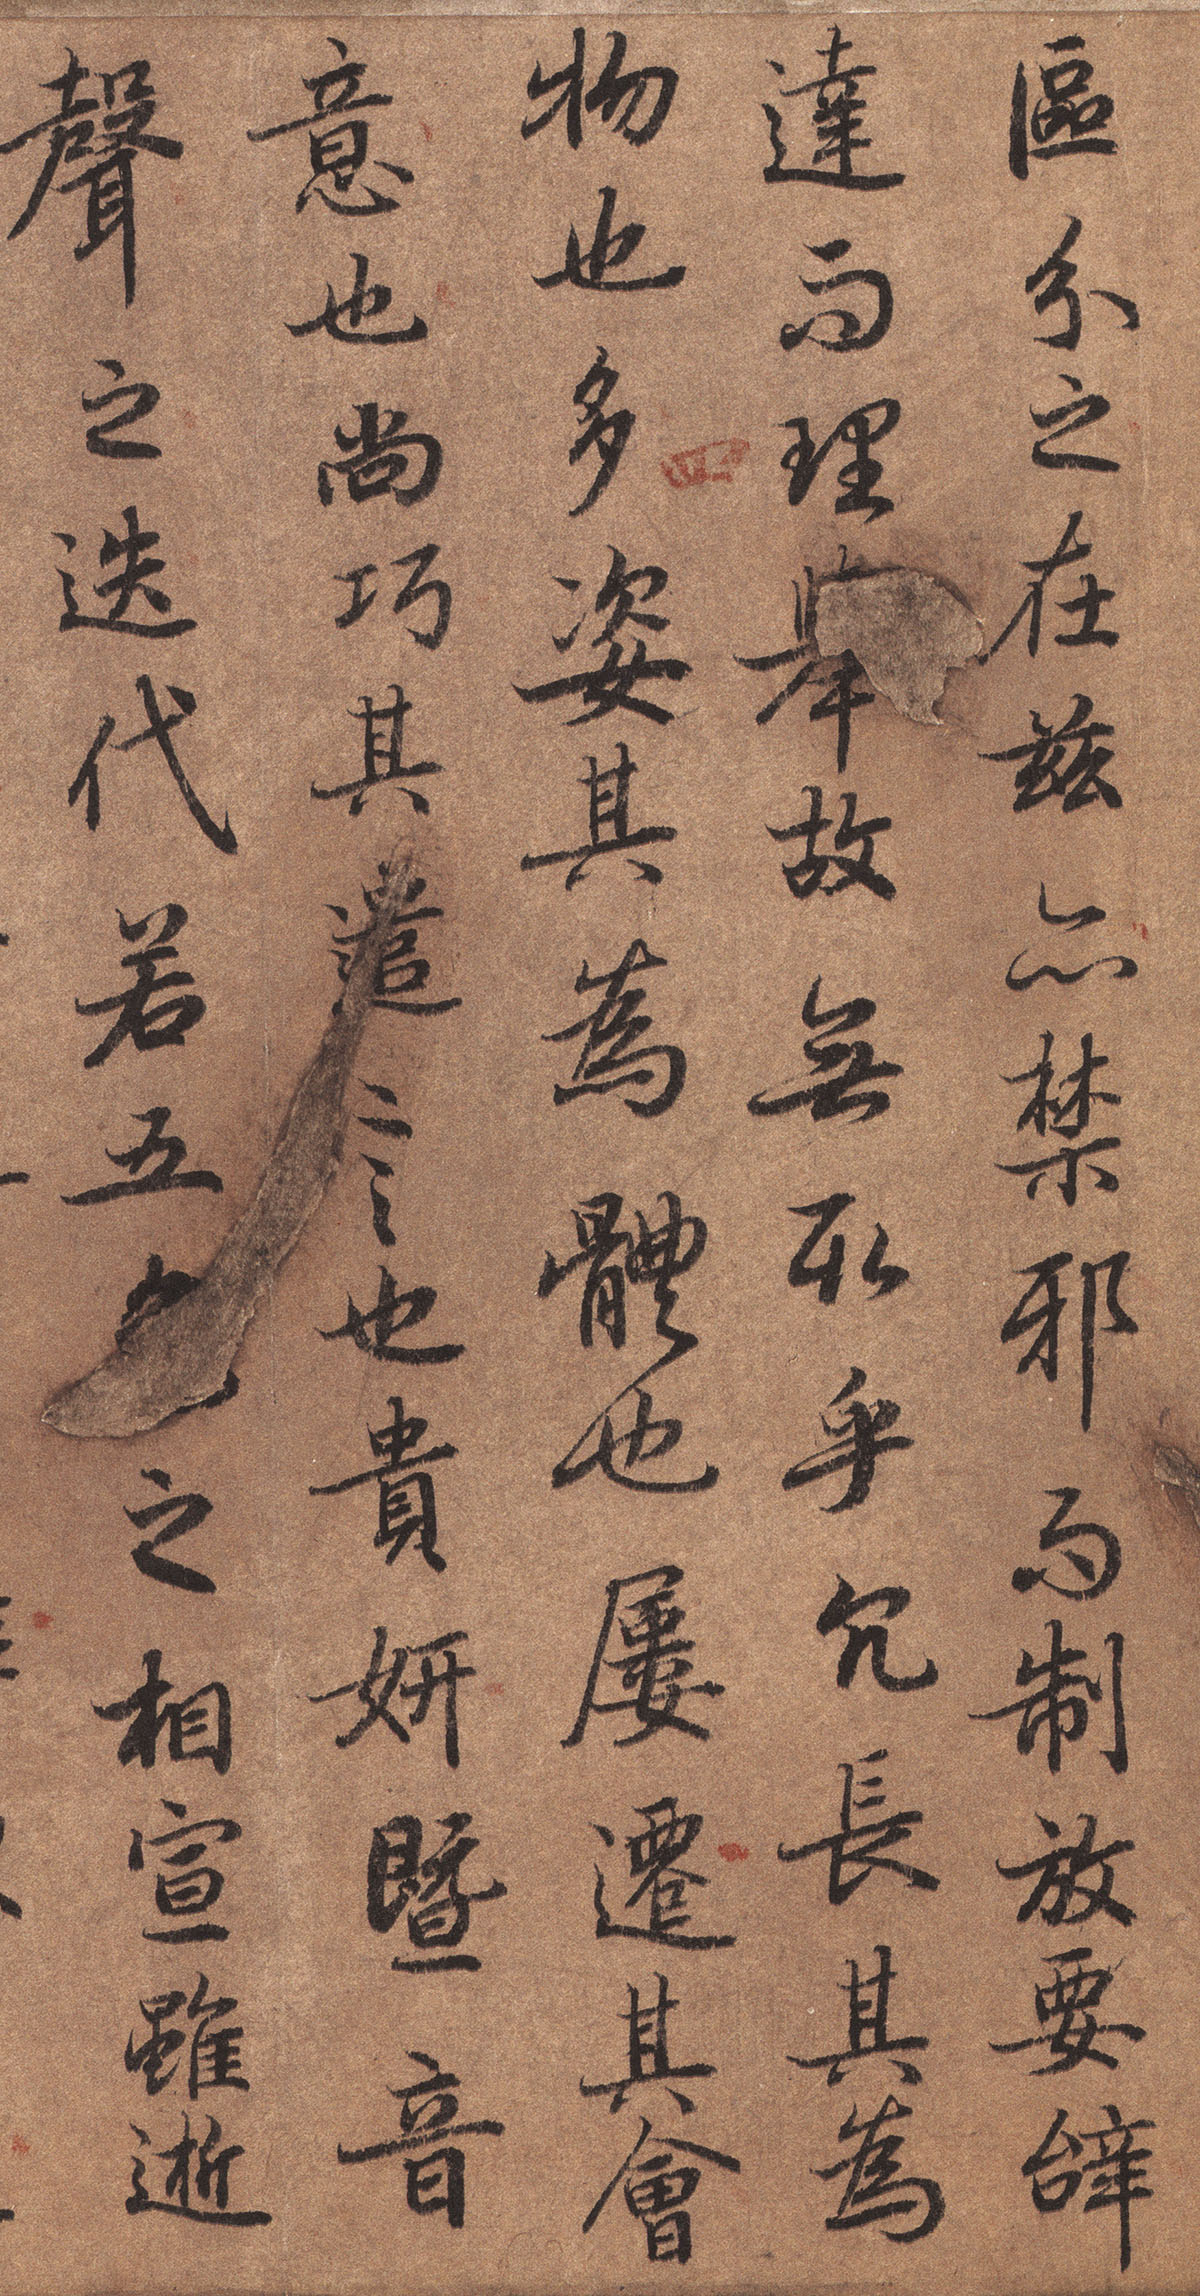 區分之在茲亦禁邪而制放要辝
達而理舉故無取乎冗長其為
物也多姿其為體也屢遷其會
意也尚巧其遣言也貴妍暨音
聲之迭代若五色之相宣雖逝